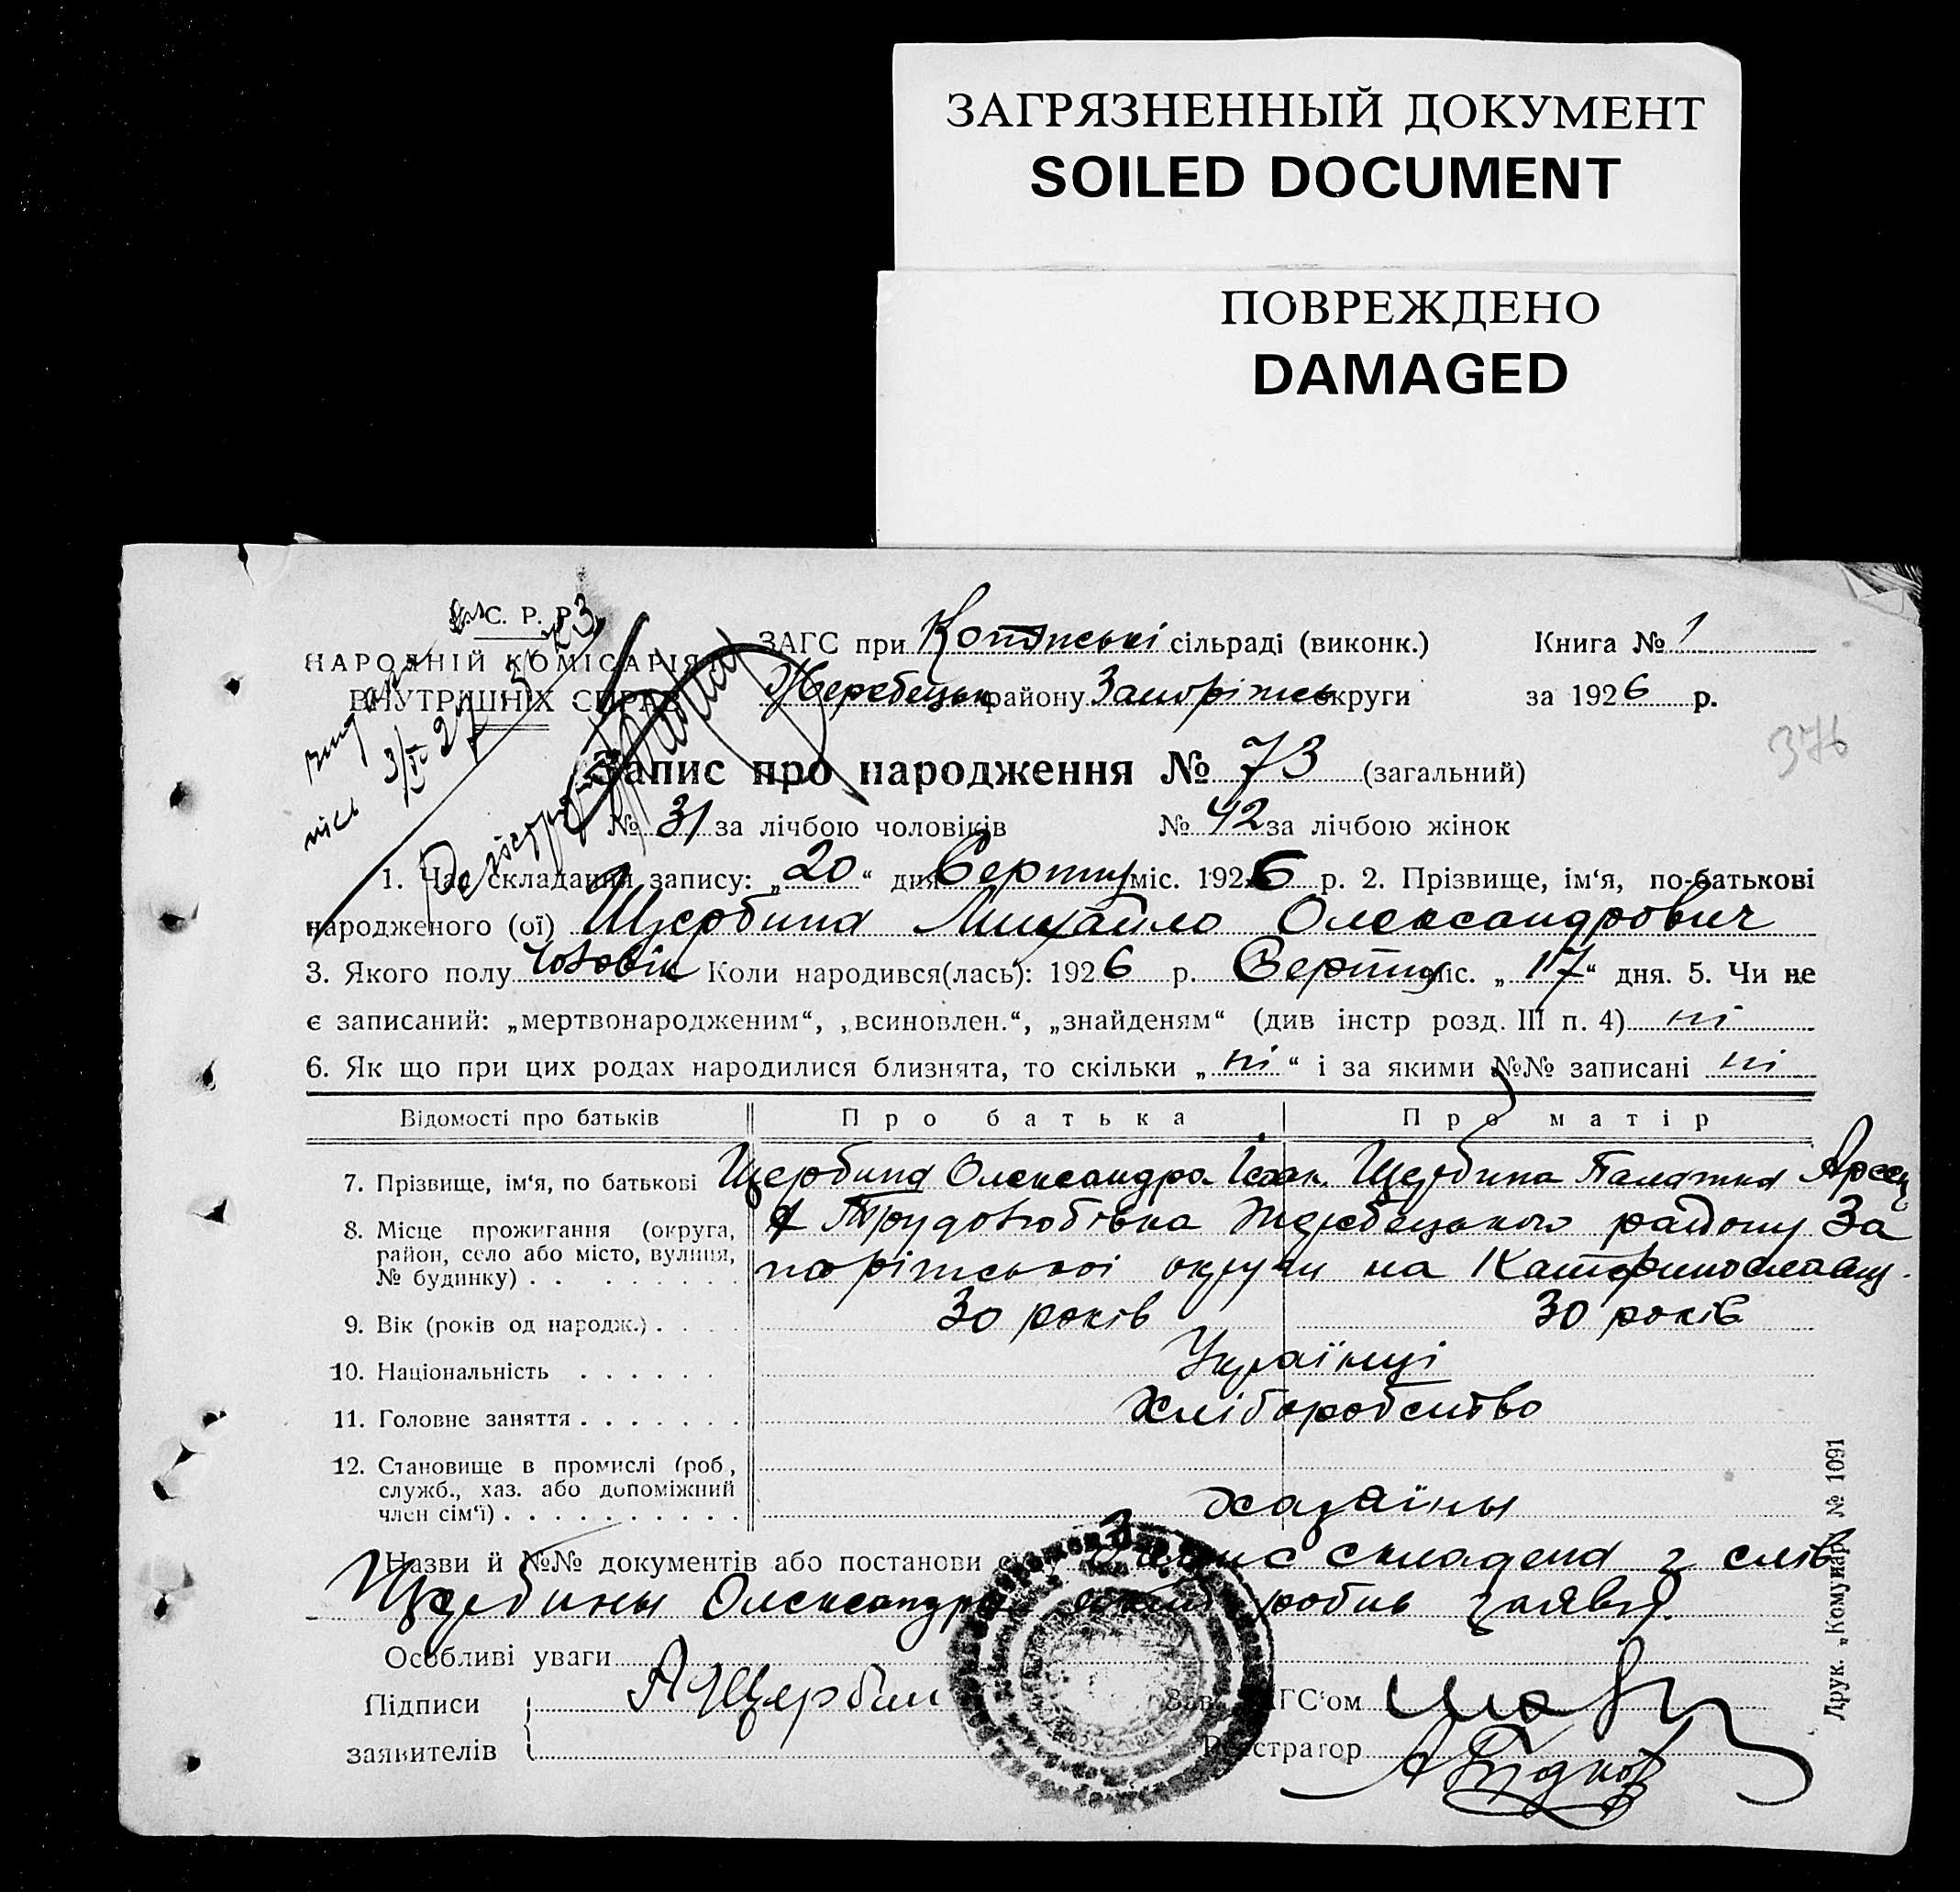 ЗАГРЯЗНЕННЫЙ ДОКУМЕНТ
SOILED DOCUMENT
ПОВРЕЖДЕНО
DAMAGED
С. Р. Р.
НАРОДНІЙ КОМІСАРІЯТ
ВНУТРІШНІХ СПРАВ
3/II 27
ЗАГС при сільраді (виконк.) Книга № 1
Жеребецьк району Запоріжсь округи за 1926 р.
376
Запис про народження № 73 (загальний)
№ 31 за лічбою чоловіків № 42 за лічбою жінок
1. Час складання запису: „20“ дня Серпня міс. 1926 р. 2. Прізвище, ім‘я, по-батькові
народженого (ої) Щербина Михайло Олександрович
3. Якого полу Чоловік Коли народився(лась): 1926 р. Серпня міс. „17“ дня. 5. Чи не
є записаний: „мертвонародженим“, „всиновлен.“, „знайденям“ (див інстр розд. III п. 4) ні
6. Як що при цих родах народилися близнята, то скільки „ні“ і за якими №№ записані ні
Відомості про батьків Про батька Про матір
7. Прізвище, ім‘я, по батькові Щербина Олександра Ісак. Щербина Палажка Арсен
8. Місце прожигання (округа, Трудолюбівка Жеребецького району За
район, село або місто, вулиця, поріжської округи на Катеринославщ.
№ будинку)
9. Вік (років од народж.) 30 років 30 років
10. Національність Українці
11. Головне заняття Хліборобство
12. Становище в промислі (роб.,
служб., хаз. або допоміжний
член сім‘ї) хазяїны
Назви й №№ документів або постанови складена з слів
Щербины Олександра робив заяву.
Особливі уваги
Підписи А Щербин Зав. ЗАГС‘ом
заявителів Реєстратор
Друк. „Комунар“ № 1091